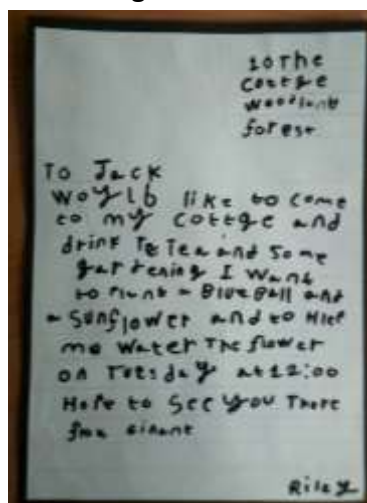 10 The
Cottge
woodland
forest
To Jack
woylb like to come
to my cottge and
drink Te Tea and Some
gardening I want
to Plant a Blue Ball and
a Sunflower and to Help
me Water The flower
on Tuesday at 12:00
Hope to See you There
from
Riley